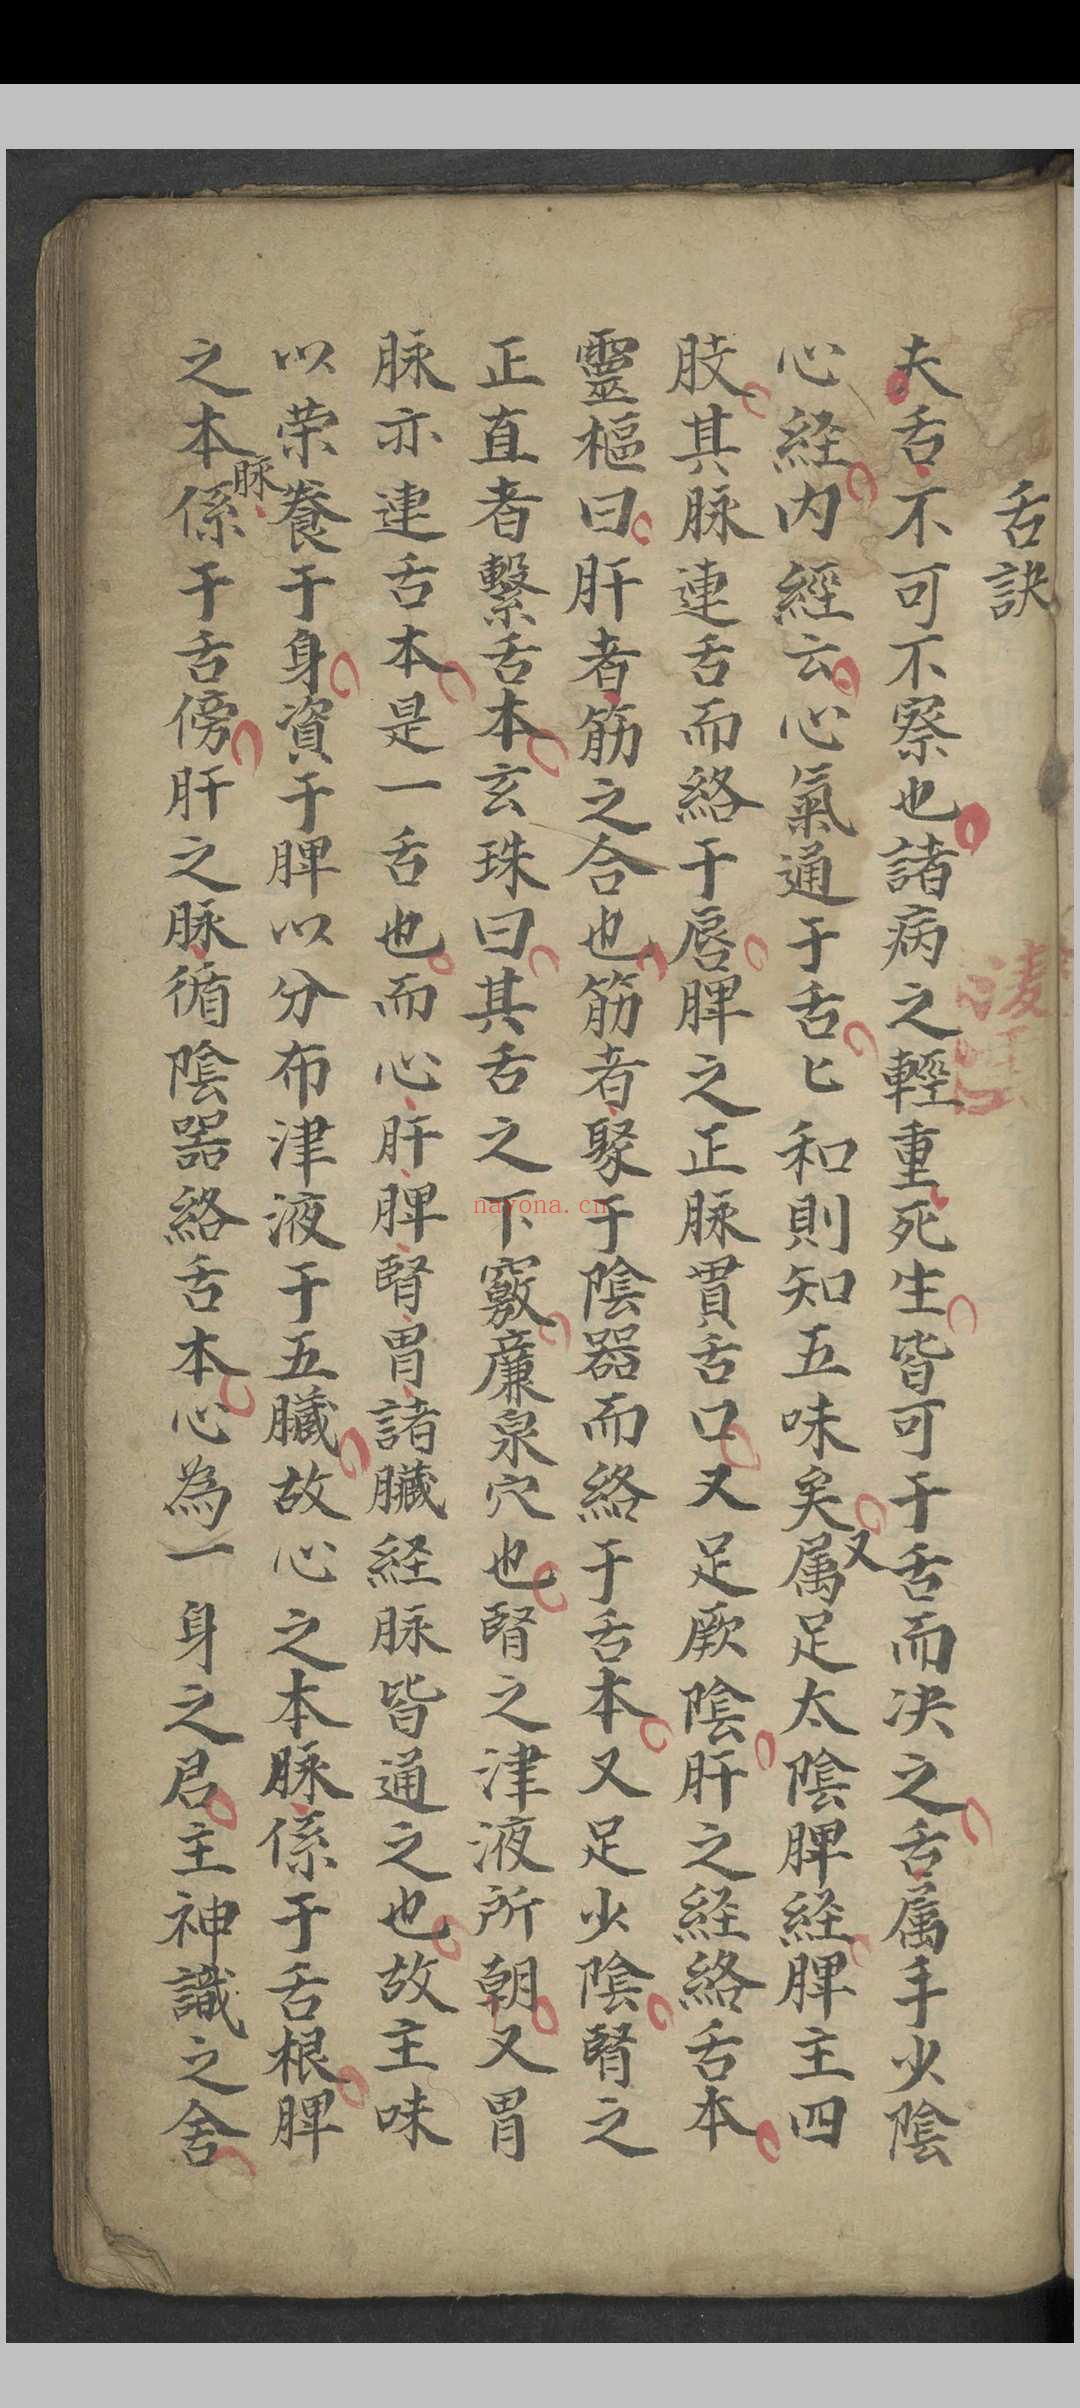 舌訣
夫舌不可不察也諸病之輕重死生皆可于舌而决之舌属手少陰
心経内經云心氣通于舌匕和則知五味矣又属足太陰脾経脾主四
肢其脉連舌而絡于唇脾之正脉貫舌口又足厥陰肝之経絡舌本
靈樞曰肝者筋之合也筋者聚于陰器而絡于舌本又足少陰腎之
正直者繫舌本玄珠曰其舌之下竅廉泉穴也腎之津液所朝又胃
脉亦連舌本是一舌也而心肝脾腎胃諸臟経脉皆通之也故主味
以荣養于身資于脾以分布津液于五臟故心之本脉係于舌根脾
之本脉係于舌傍肝之脉循陰器絡舌本心為一身之君主神識之舍
nayona.cn